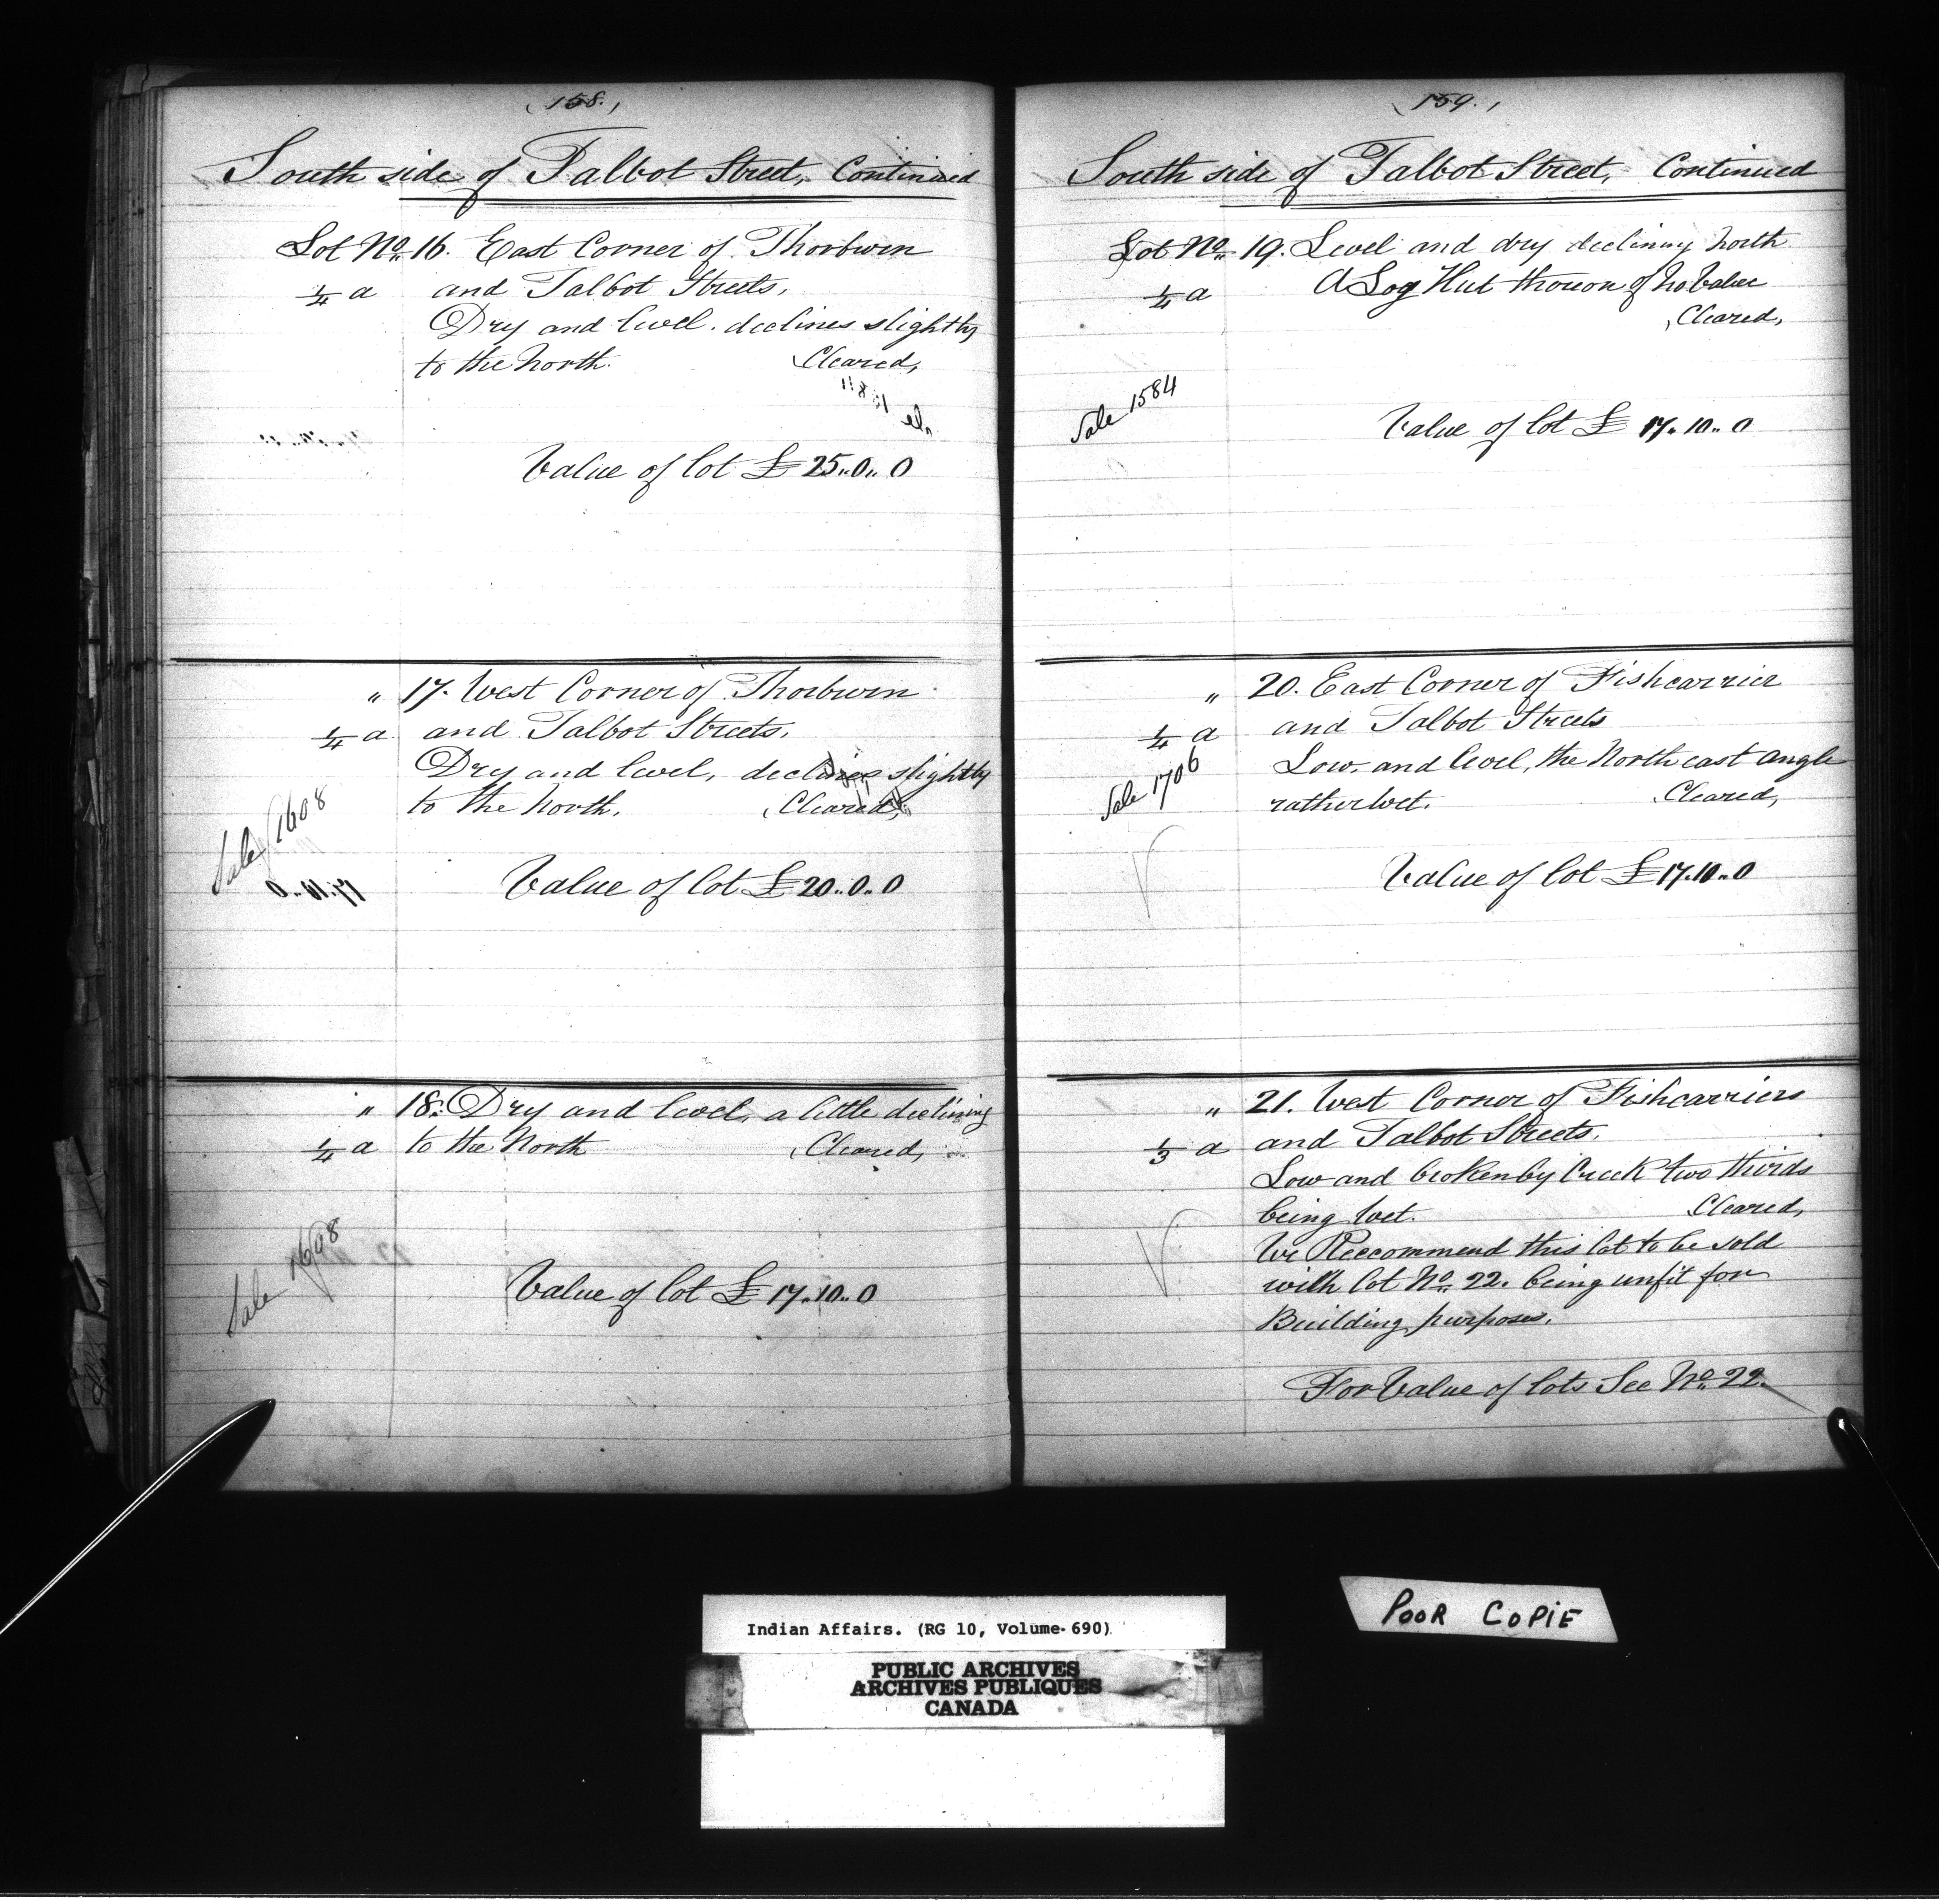 (158.)
South side of Talbot Street, Continued
Lot No. 16. East Corner of Thorburn
1/4 a and Talbot Streets,
Dry and level. declines slightly
to the North. Cleared,
Value of lot £25..0..0
" 17. West Corner of Thorburn
1/4 a and Talbot Streets,
Dry and level, declines slightly
to the North. Cleared,
Sale 1608
Value of lot £20..0..0
" 18. Dry and level, a little declining
1/4 a to the North Cleared,
Sale 1698
Value of lot £17..10..0
(159.)
South side of Talbot Street, Continued
Lot No. 19. Level and dry declining North
1/4 a A Log Hut thereon of no Value
Cleared,
Sale 1584
Value of lot £17..10..0
" 20. East Corner of Fishcarrier
1/4 a and Talbot Streets
Low, and level, the North east Angle
rather wet. Cleared,
Sale 1706
Value of lot £17.10..0
" 21. West Corner of Fishcarriers
1/3 a and Talbot Streets.
Low and broken by Creek two thirds
being wet. Cleared,
We Reccommend this lot to be sold
with lot No. 22. being unfit for
Building purposes.
For Value of lots See No. 22.
Indian Affairs. (RG 10, Volume-690)
PUBLIC ARCHIVES
ARCHIVES PUBLIQUES
CANADA
POOR COPIE